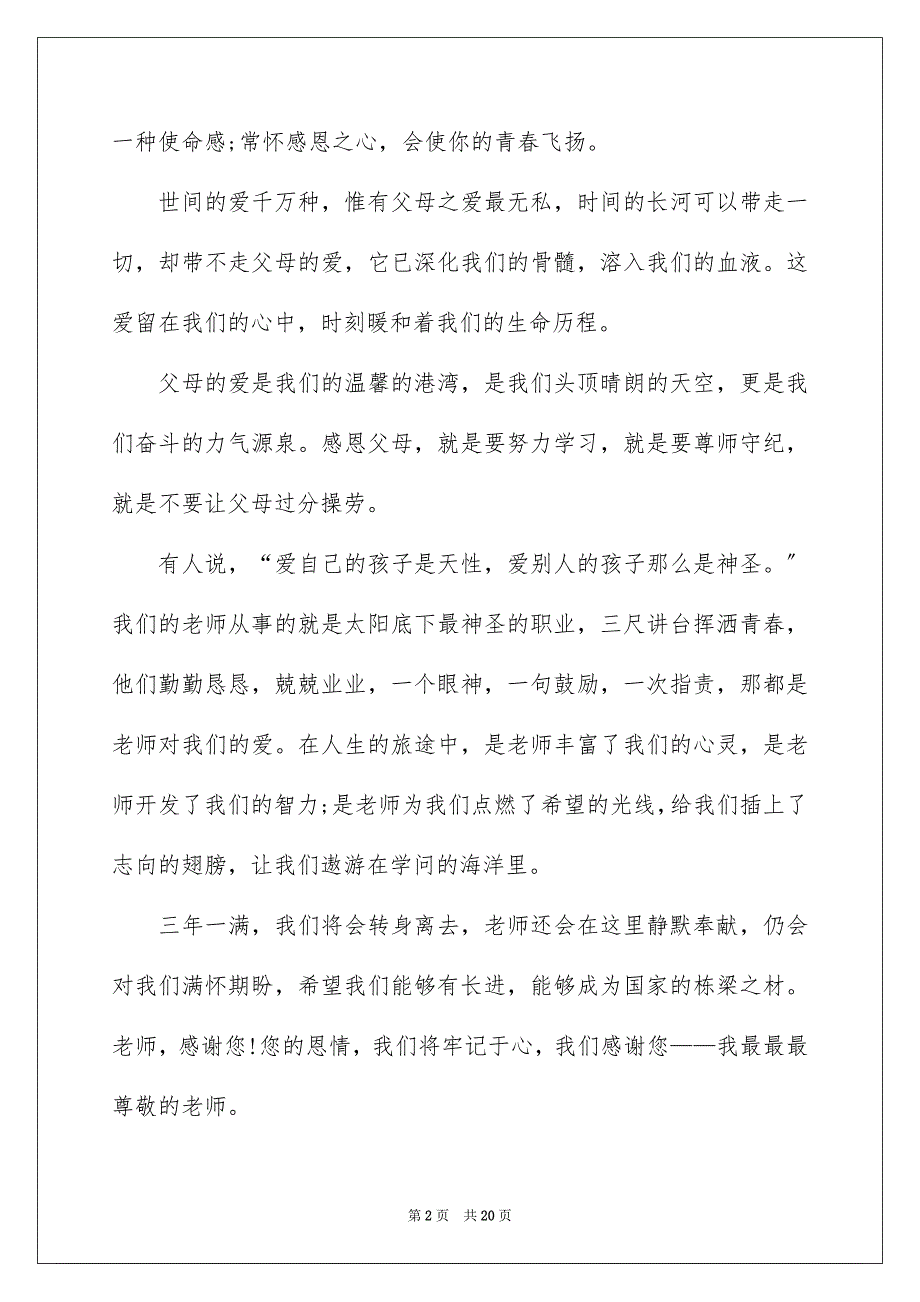 一种使命感;常怀感恩之心，会使你的青春飞扬。
世间的爱千万种，惟有父母之爱最无私，时间的长河可以带走一
切，却带不走父母的爱，它已深化我们的骨髓，溶入我们的血液。这
爱留在我们的心中，时刻暖和着我们的生命历程。
父母的爱是我们的温馨的港湾，是我们头顶晴朗的天空，更是我
们奋斗的力气源泉。感恩父母，就是要努力学习，就是要尊师守纪，
就是不要让父母过分操劳。
有人说，“爱自己的孩子是天性，爱别人的孩子那么是神圣。〞
我们的老师从事的就是太阳底下最神圣的职业，三尺讲台挥洒青春，
他们勤勤恳恳，兢兢业业，一个眼神，一句鼓励，一次指责，那都是
老师对我们的爱。在人生的旅途中，是老师丰富了我们的心灵，是老
师开发了我们的智力;是老师为我们点燃了希望的光线,给我们插上了
志向的翅膀，让我们遨游在学问的海洋里。
三年一满，我们将会转身离去，老师还会在这里静默奉献，仍会
对我们满怀期盼，希望我们能够有长进，能够成为国家的栋梁之材。
老师，感谢您!您的恩情，我们将牢记于心，我们感谢您——我最最最
尊敬的老师。
第 2 页 共 20 页